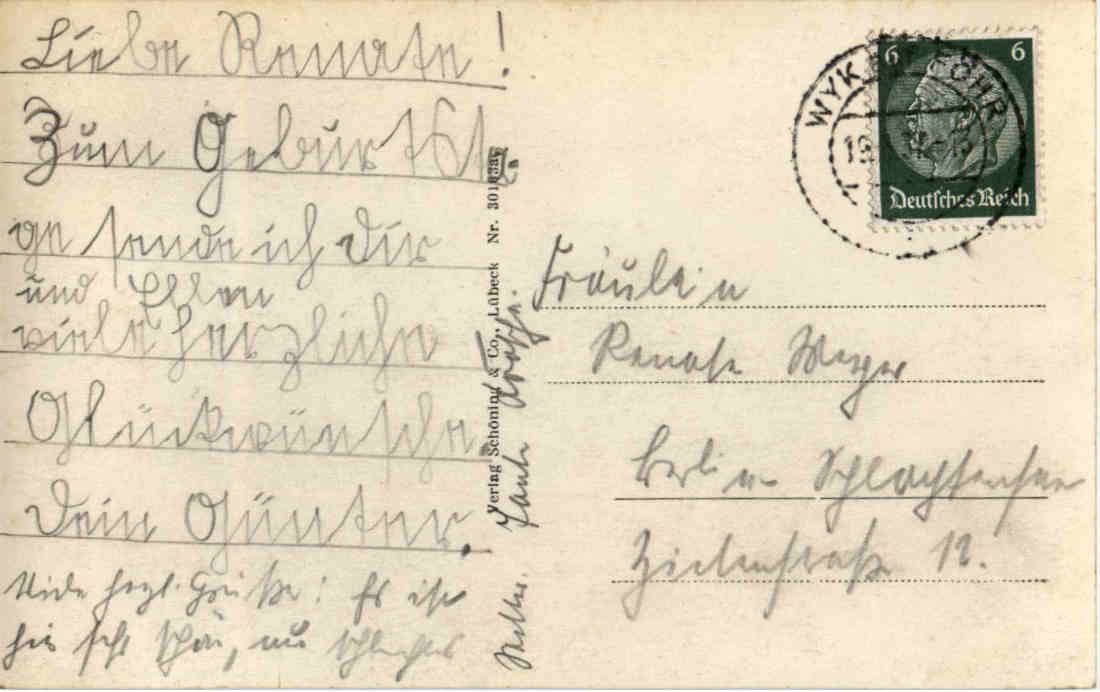 Liebe Renate!
Zum Geburtsta-
ge sende ich Dir
und Ellen
viele herzliche
Glückwünsche.
Dein Günter.
Viele herzl. Grüße! Es ist
hier sehr schön, nur schlechtes
Wetter. Tante
Verlag Schöning & Co., Lübeck Nr. 30193av
WYK FÖHR
6 6
Deutsches Reich
Fräulein
Renate
Berlin Schlachtensee
Zietenstraße 12.